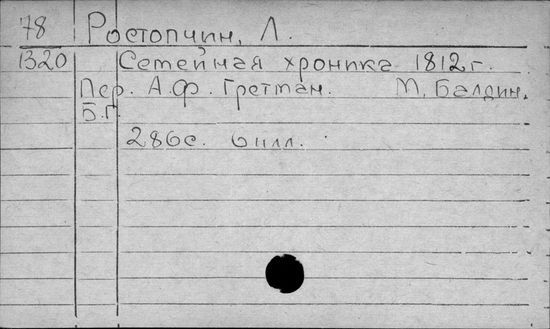 78 Ростопчин, Л.
1320 Семейная хроника 1812 г.
Пер. А.Ф. Гретман. М, Балдин,
Б.Г.
286с. 6 илл.